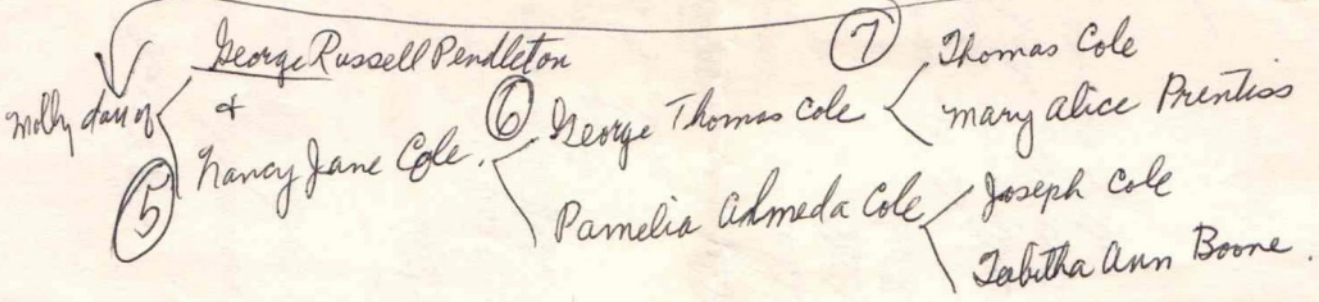 George Russell Pendleton
Molly dau of
&
5
Nancy Jane Cole.
6
George Thomas Cole
Pamelia Almeda Cole
7
Thomas Cole
Mary Alice Prentiss
Joseph Cole
Tabitha Ann Boone.